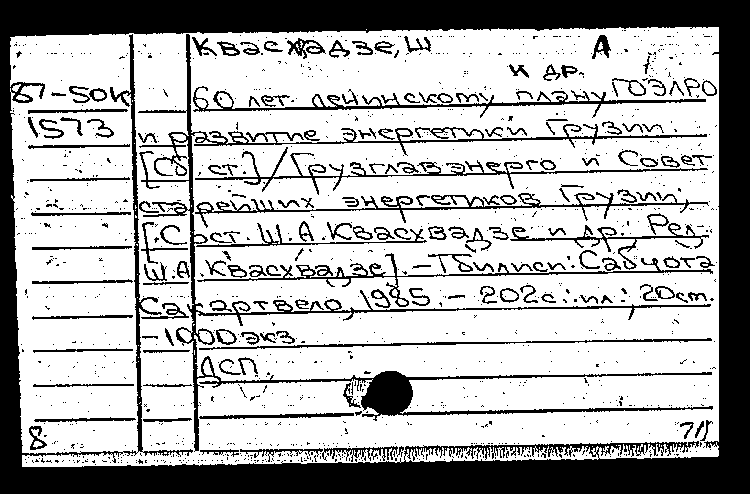 Квасхвадзе, Ш А
и др.
87-50к 60 лет ленинскому плану ГОЭЛРО
1573 и развитие энергетики Грузии.
[Сб. ст.] / Грузглавэнерго и Совет
старейших энергетиков Грузии;
[Сост. Ш.А. Квасхвадзе и др.; Ред.
Ш.А. Квасхвадзе]. – Тбилиси: Сабчота
Сакартвело, 1985. – 202с.: ил.; 20см.
– 1000 экз.
ДСП.
8